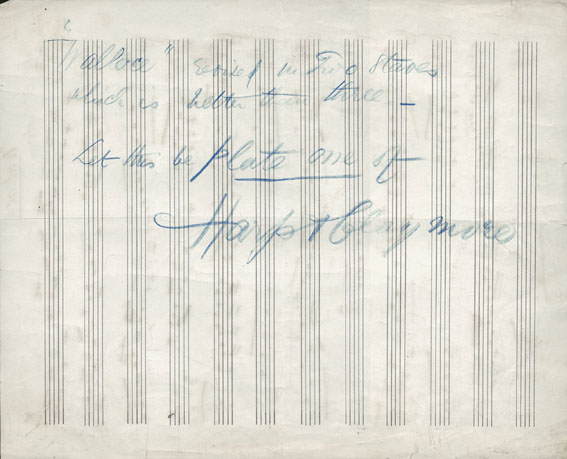 "Wallace" revised in Two Staves
which is better than three –
Let this be plate one of
Harp & Claymore